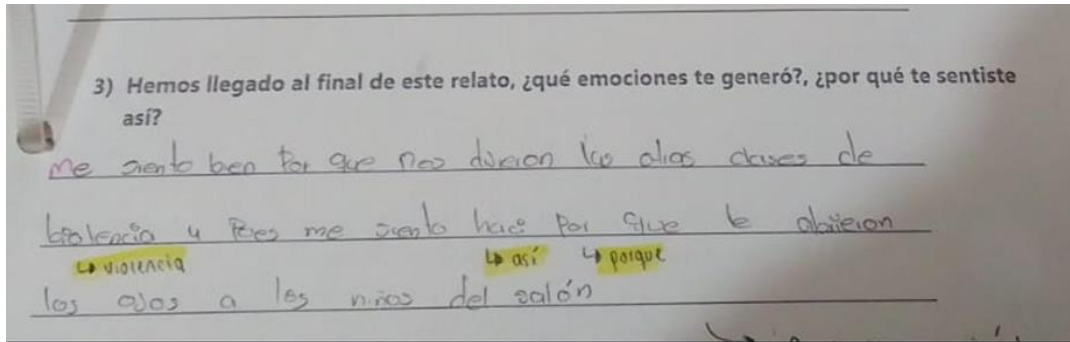 3) Hemos llegado al final de este relato, ¿qué emociones te generó?, ¿por qué te sentiste
así?
me siento ben por que nos dieron las clases de
biolencia y me siento haci por que le abrieron
↳ violencia ↳ así ↳ porque
los ojos a los niños del salón